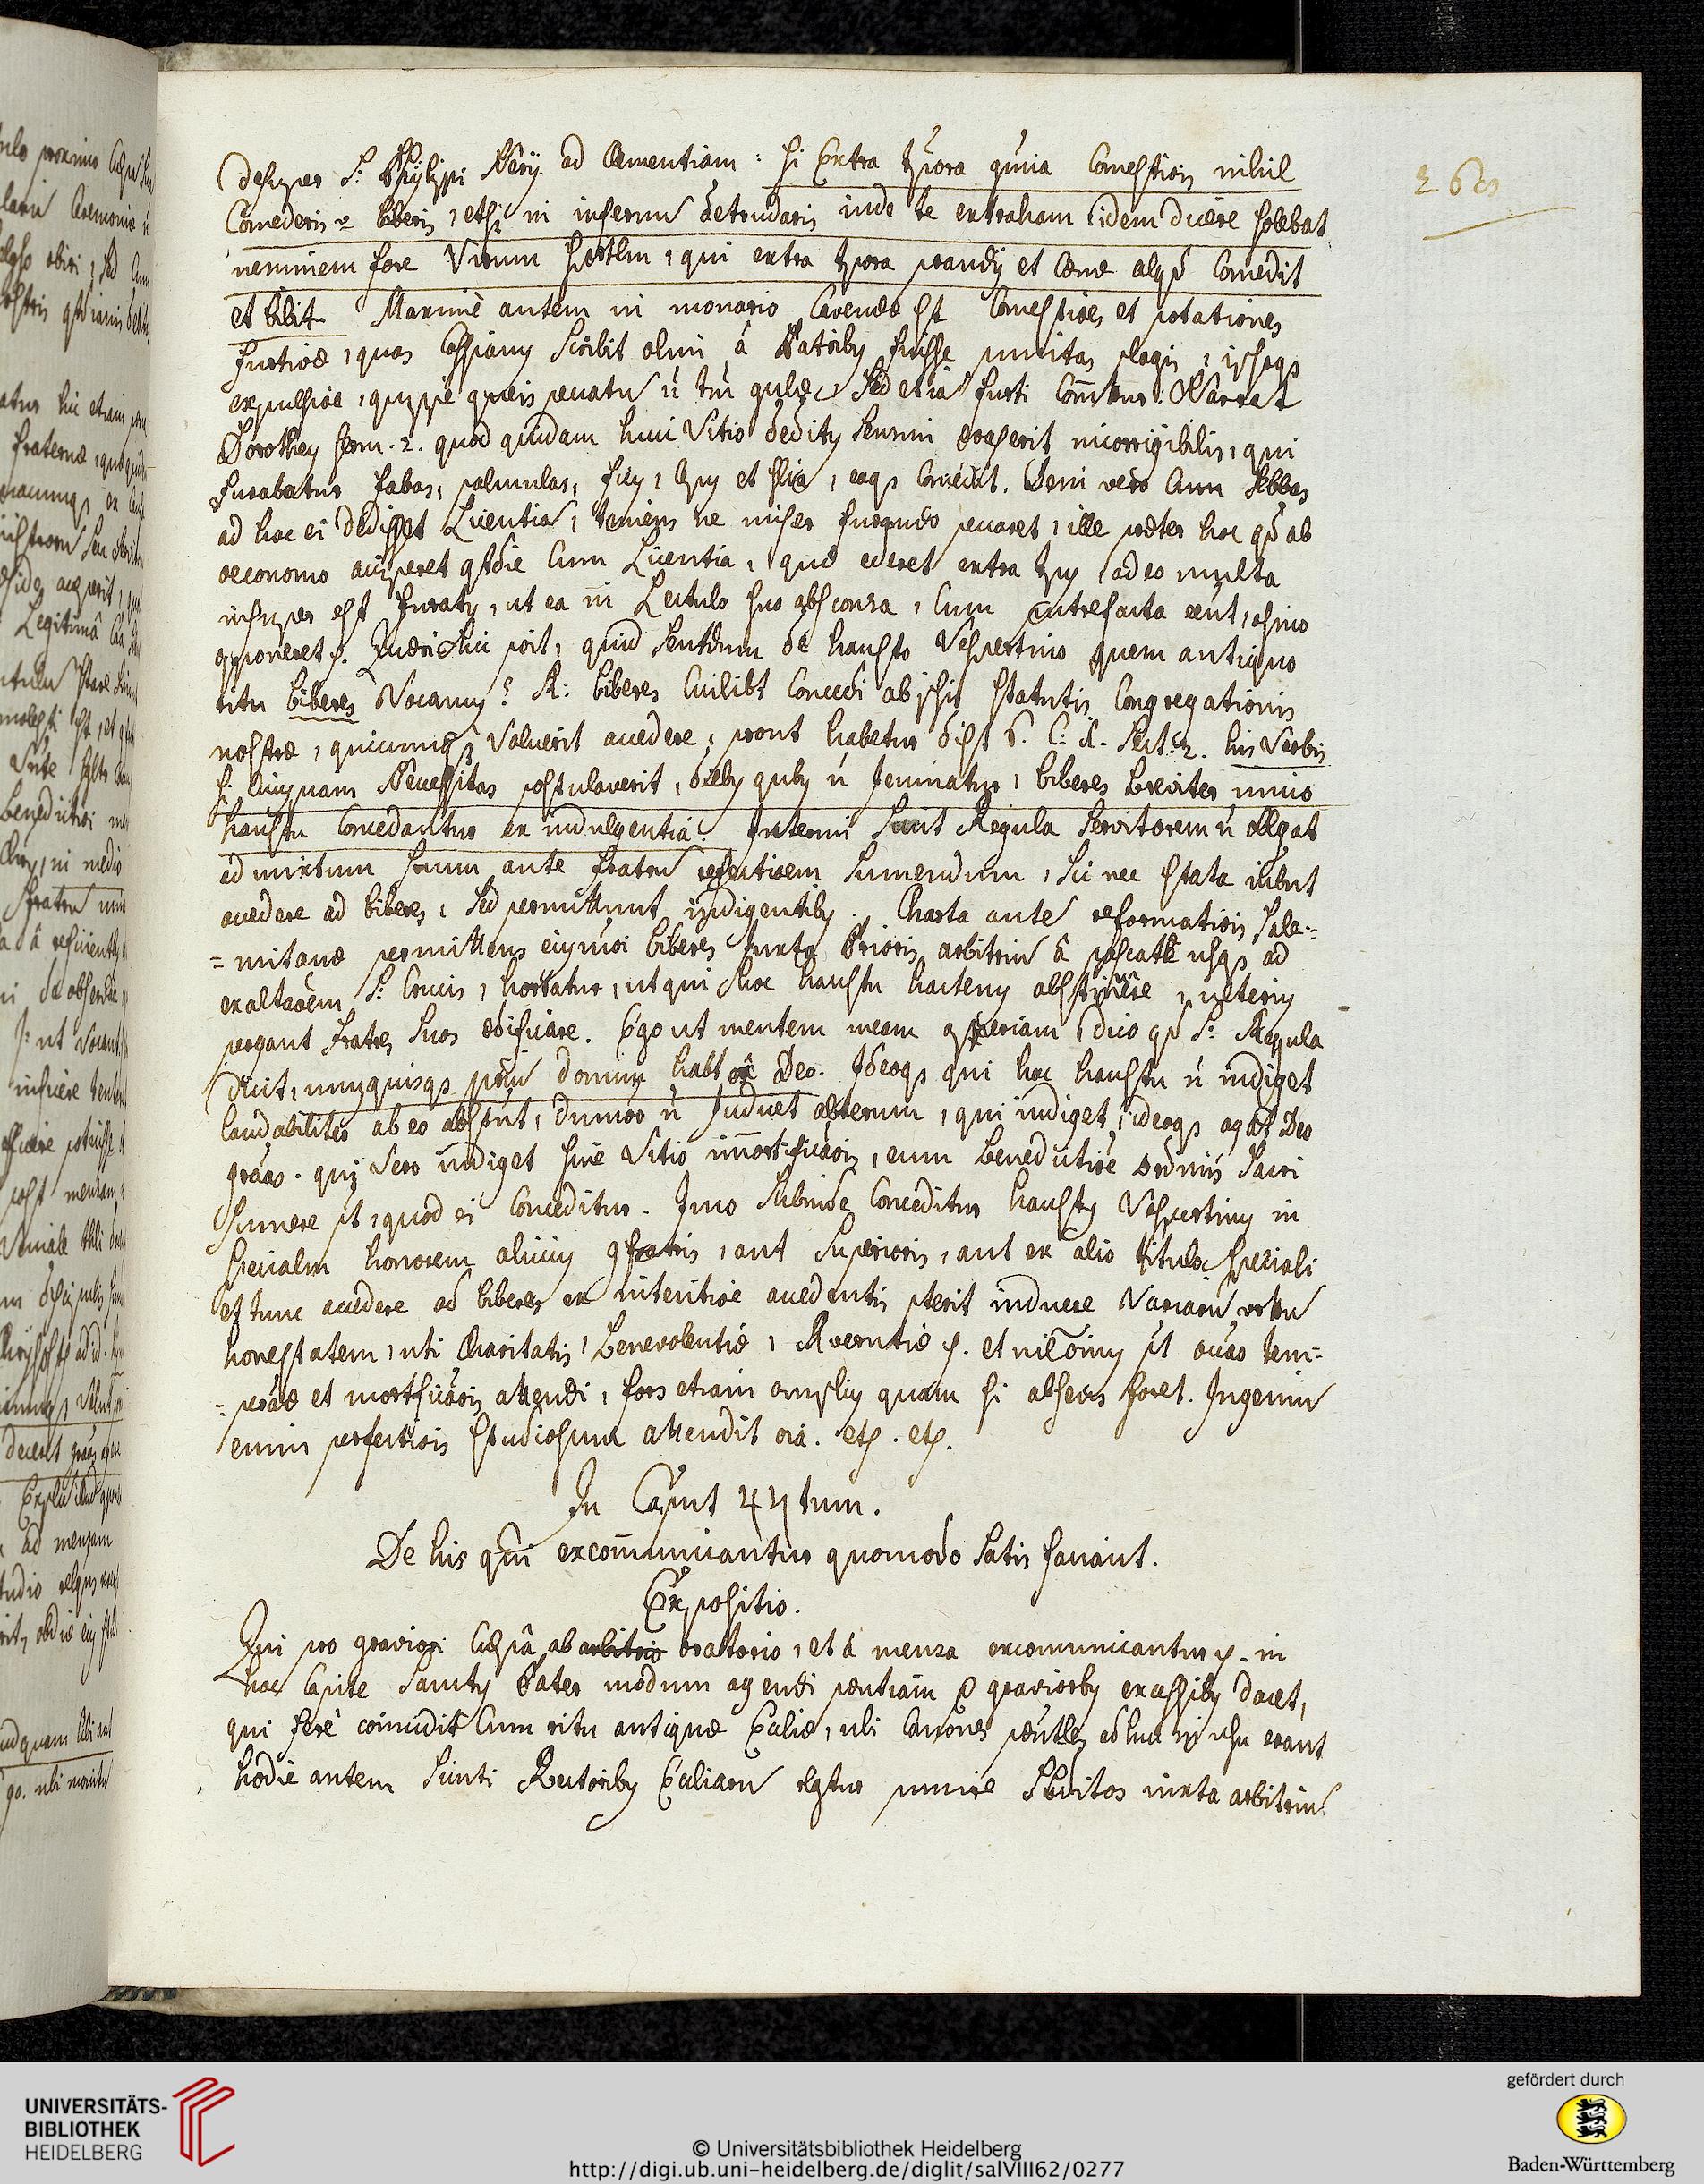 260
desuper S: Phylippi Nerij ad Clementiam: si Extra tpora quia Comestiois nihil
Comederis & biberis, etsi in infernu detrudaris inde te extraham (idem dicere solebat
neminem fore Virum sprtlem, qui extra tpora prandij et Cenæ alqd Comedit
et bibit. Maxime autem in monario Cavendæ st Comestioes et potationes
furtivæ, quas Cassiany Scribit olim à Patriby fuisse punitas plagis, ipsaqs
expulsioe, quippe queis peccatur ñ tm gulæ, Sed etiã furti Comitur: Narrat
Dorothey serm. 2. quod quidam huic Vitio dedity Seursim evaserit incorrigibilis, qui
furabatur fabas, palmulas, ficus, et alia, eaqs Comedit. Demi vero Cum Abbas
ad hoc ei dedisset Licentiã, timens ne miser furando peccaret, ille præter hoc qd ab
oeconomo acciperet qtdie Cum Licentia, quæ ederet extra tpus adeo multa
insuper est furaty, ut ea in Lectulo suo absconsa, Cum putrefacta eent, asino
apponeret. Quæri hic poit, quid sentdum de haustu Vespertino quem antiquo
ritu biberes Vocamus? R: biberes Cuilibt Concedi ab ipsis statutis Congregationis
nostræ, quicumqs voluerit accedere, prout habetur dist 6. C. R. Sect: 2. his verbis
si cuiquam Necessitas postulaverit, dieby quby ñ Jeiunatur, biberes breviter unico
haustu Concedantur ex indulgentia. Interim Sicut Regula Servitorem ñ obligat
ad mixtum suum ante fratru refectioem Sumendum, Sic nec Stata iubnt
accedere ad biberes, Sed permittunt indigentiby. Charta ante reformatiois Sale-
=mitanæ permittens eiusmoi biberes Juxta Prioris arbitriu â pascate usqs ad
exaltaoem S: Crucis, hortatur, ut qui hoc haustu hactenus abstinuêre, ulterius
pergant fratres Suos ædificare. Ego ut mentem meam aperiam (dico qd S: Regula
dicit, unusquisqs prium donum habt ex Deo. Ideoqs qui hoc haustu ñ indiget
laudabiliter ab eo abstint, dummodo ñ Judicet alterum, qui indiget, ideoqs agat Deo
graas. qui Vero indiget sine Vitio imortificaois, eum benedictioe ordinis Sacri
sumere pt, quod ei Conceditur. Imo Subinde Conceditur hausty Vespertinus in
specialm honorem alicuius qfratris, aut Superioris, aut ex alio titulo speciali
et tunc accedere ad biberes ex intentioe accedentis pterit induere Variam virtu
honestatem, uti Charitatis, Benevolentiæ, Reverentiæ. et nilominus pt occao tem-
=peraæ et mortificaois attendi, fors etiam amplius quam si absens foret. Ingeniu
enim perfectiois studiosum attendit oia. etc. etc.
In Caput 44tum.
De his qui excommunicantur quomodo satis faciant.
Expositio.
Qui pro graviori Culpâ ab arbitrio oratorio, et â mensa excomunicantur. in
hoc Capite Sancty Pater modum agendi pentiam p gravioriby excessiby docet,
qui fere coincidit Cum ritu antiquæ Eccliæ, ubi Canones pentles adhuc in usu erant
hodie antem Sicuti Rectoriby Eccliaru relqtur punire Subditos iuxta arbitriu
UNIVERSITÄTS-
BIBLIOTHEK
HEIDELBERG
gefördert durch
Baden-Württemberg
© Universitätsbibliothek Heidelberg
http://digi.ub.uni-heidelberg.de/diglit/salVIII62/0277